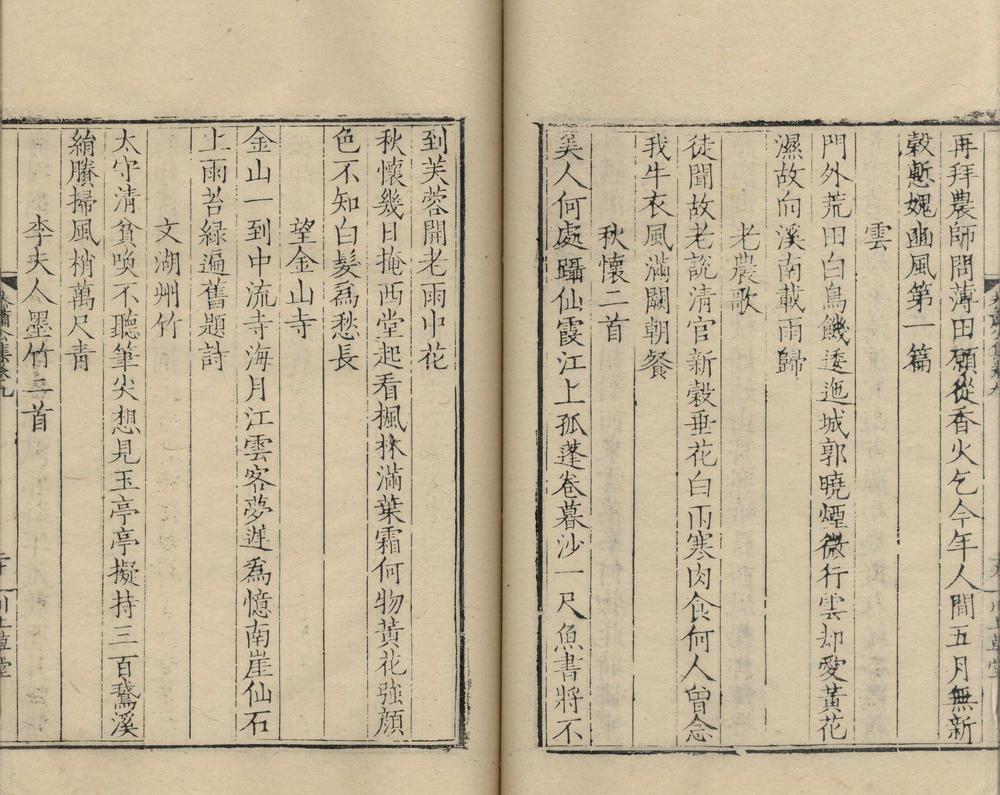 再拜農師問薄田願從香火乞今年人間五月無新
穀慙媿豳風第一篇
雲
門外荒田白鳥饑逶迤城郭曉煙微行雲却愛黃花
濕故向溪南載雨歸
老農歌
徒聞故老說清官新穀垂花白雨寒肉食何人曾念
我牛衣風滿闕朝餐
秋懷二首
美人何處躡仙霞江上孤蓬卷暮沙一尺魚書將不
到芙蓉開老雨中花
秋懷幾日掩西堂起看楓林滿葉霜何物黃花強顔
色不知白髮爲愁長
望金山寺
金山一到中流寺海月江雲客夢遲爲憶南崖仙石
上雨苔綠遍舊題詩
文湖州竹
太守清貧喚不聽筆尖想見玉亭亭擬持三百鵞溪
絹賸掃風梢萬尺青
李夫人墨竹二首